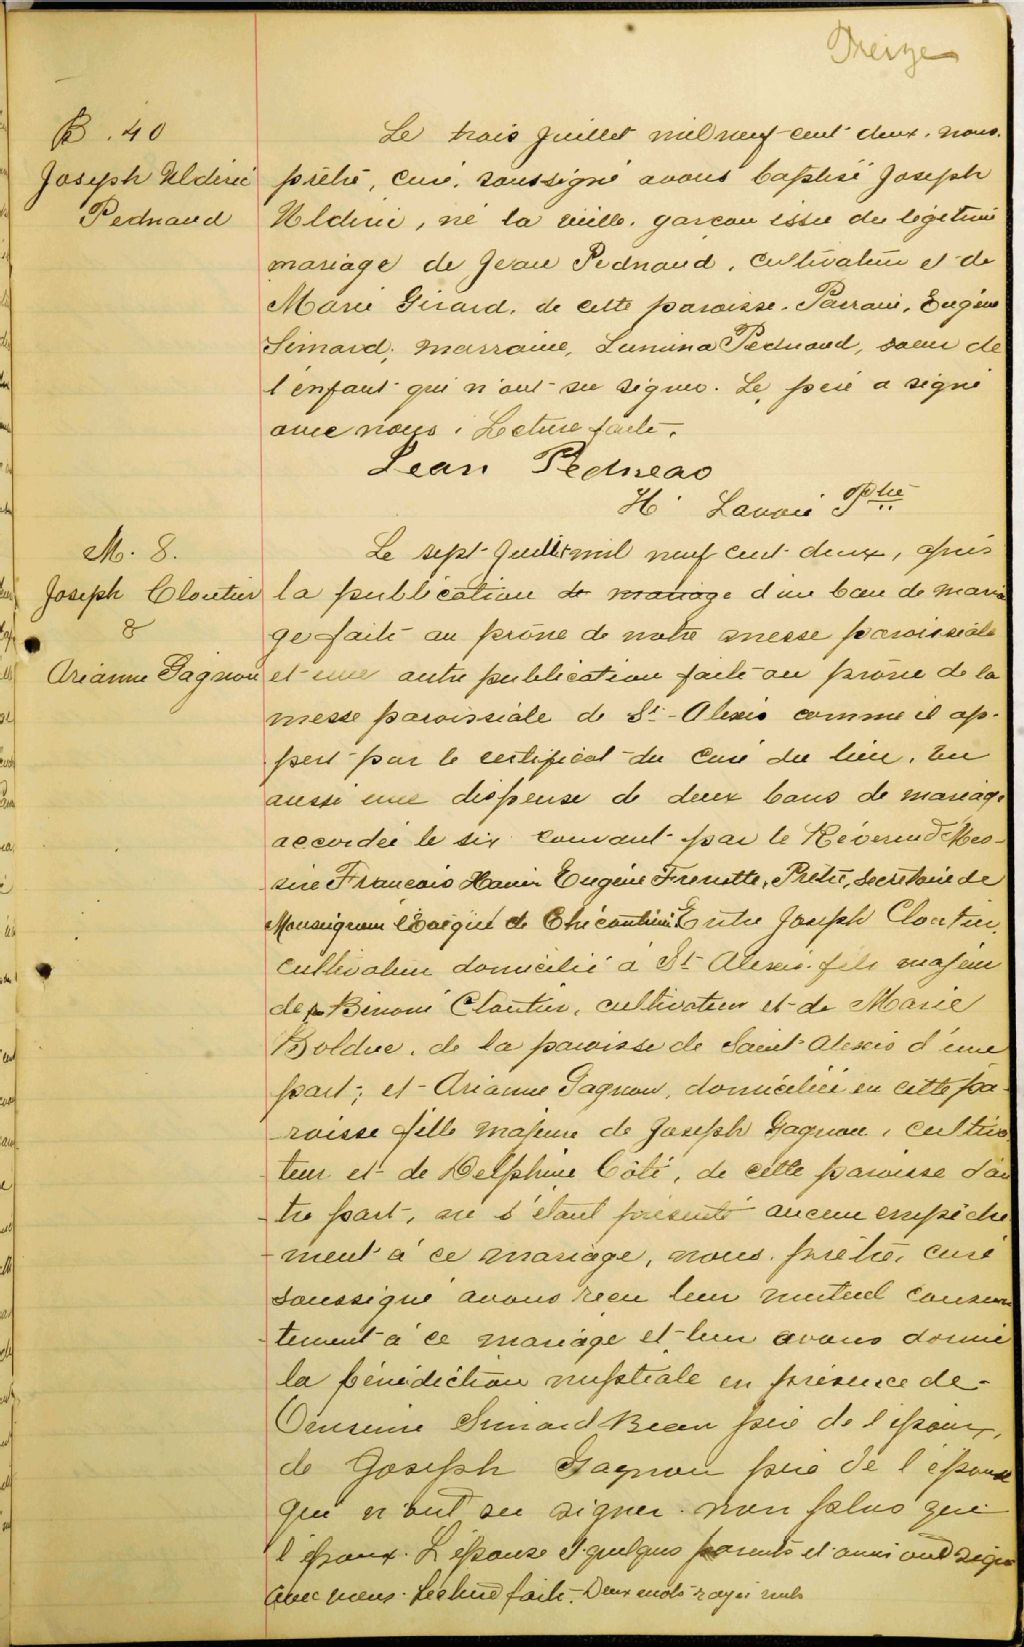 Treize
B. 40
Joseph Uldéric
Pednaud
Le trois Juillet mil neuf cent deux, nous,
prêtre, curé, soussigné avons baptisé Joseph
Uldéric, né la veille, garçon issu du légitime
mariage de Jean Pednaud, cultivateur et de
Marie Girard, de cette paroisse. Parrain, Eugène
Simard; marraine, Lumina Pednaud, soeur de
l'enfant qui n'ont su signer. Le père a signé
avec nous. Lecture faite.
Jean Pedneao
H. Lavoie Ptre
M. 8.
Joseph Cloutier
&
Arianne Gagnon
Le sept Juillet mil neuf cent deux, après
la publication de mariage d'un ban de maria
ge faite au prône de notre messe paroissiale
et une autre publication faite au prône de la
messe paroissiale de St-Alexis comme il ap-
pert par le certificat du curé du lieu. Vu
aussi une dispense de deux bans de mariage
accordée le six courant par le Révérend Mes-
sire François Xavier Eugène Frenette, Prêtre, Secrétaire de
Monseigneur l'Evêque de Chicoutimi Entre Joseph Cloutier,
cultivateur domicilié à St Alexis fils majeur
de Binoni Cloutier, cultivateur et de Marie
Bolduc, de la paroisse de Saint Alexis d'une
part; et Arianne Gagnon, domiciliée en cette pa-
roisse fille majeure de Joseph Gagnon, cultiva
teur et de Delphine Côté, de cette paroisse d'au
tre part, ne s'étant présenté aucun empêche
ment à ce mariage, nous, prêtre, curé
soussigné avons reçu leur mutuel consen
tement à ce mariage et leur avons donné
la bénédiction nuptiale en présence de
Simard Beau père de l'époux,
de Joseph Gagnon père de l'épouse
qui n'ont su signer non plus que
l'époux. L'épouse et quelques parents et amis ont signé
avec nous. Lecture faite. Deux mots rayés nuls